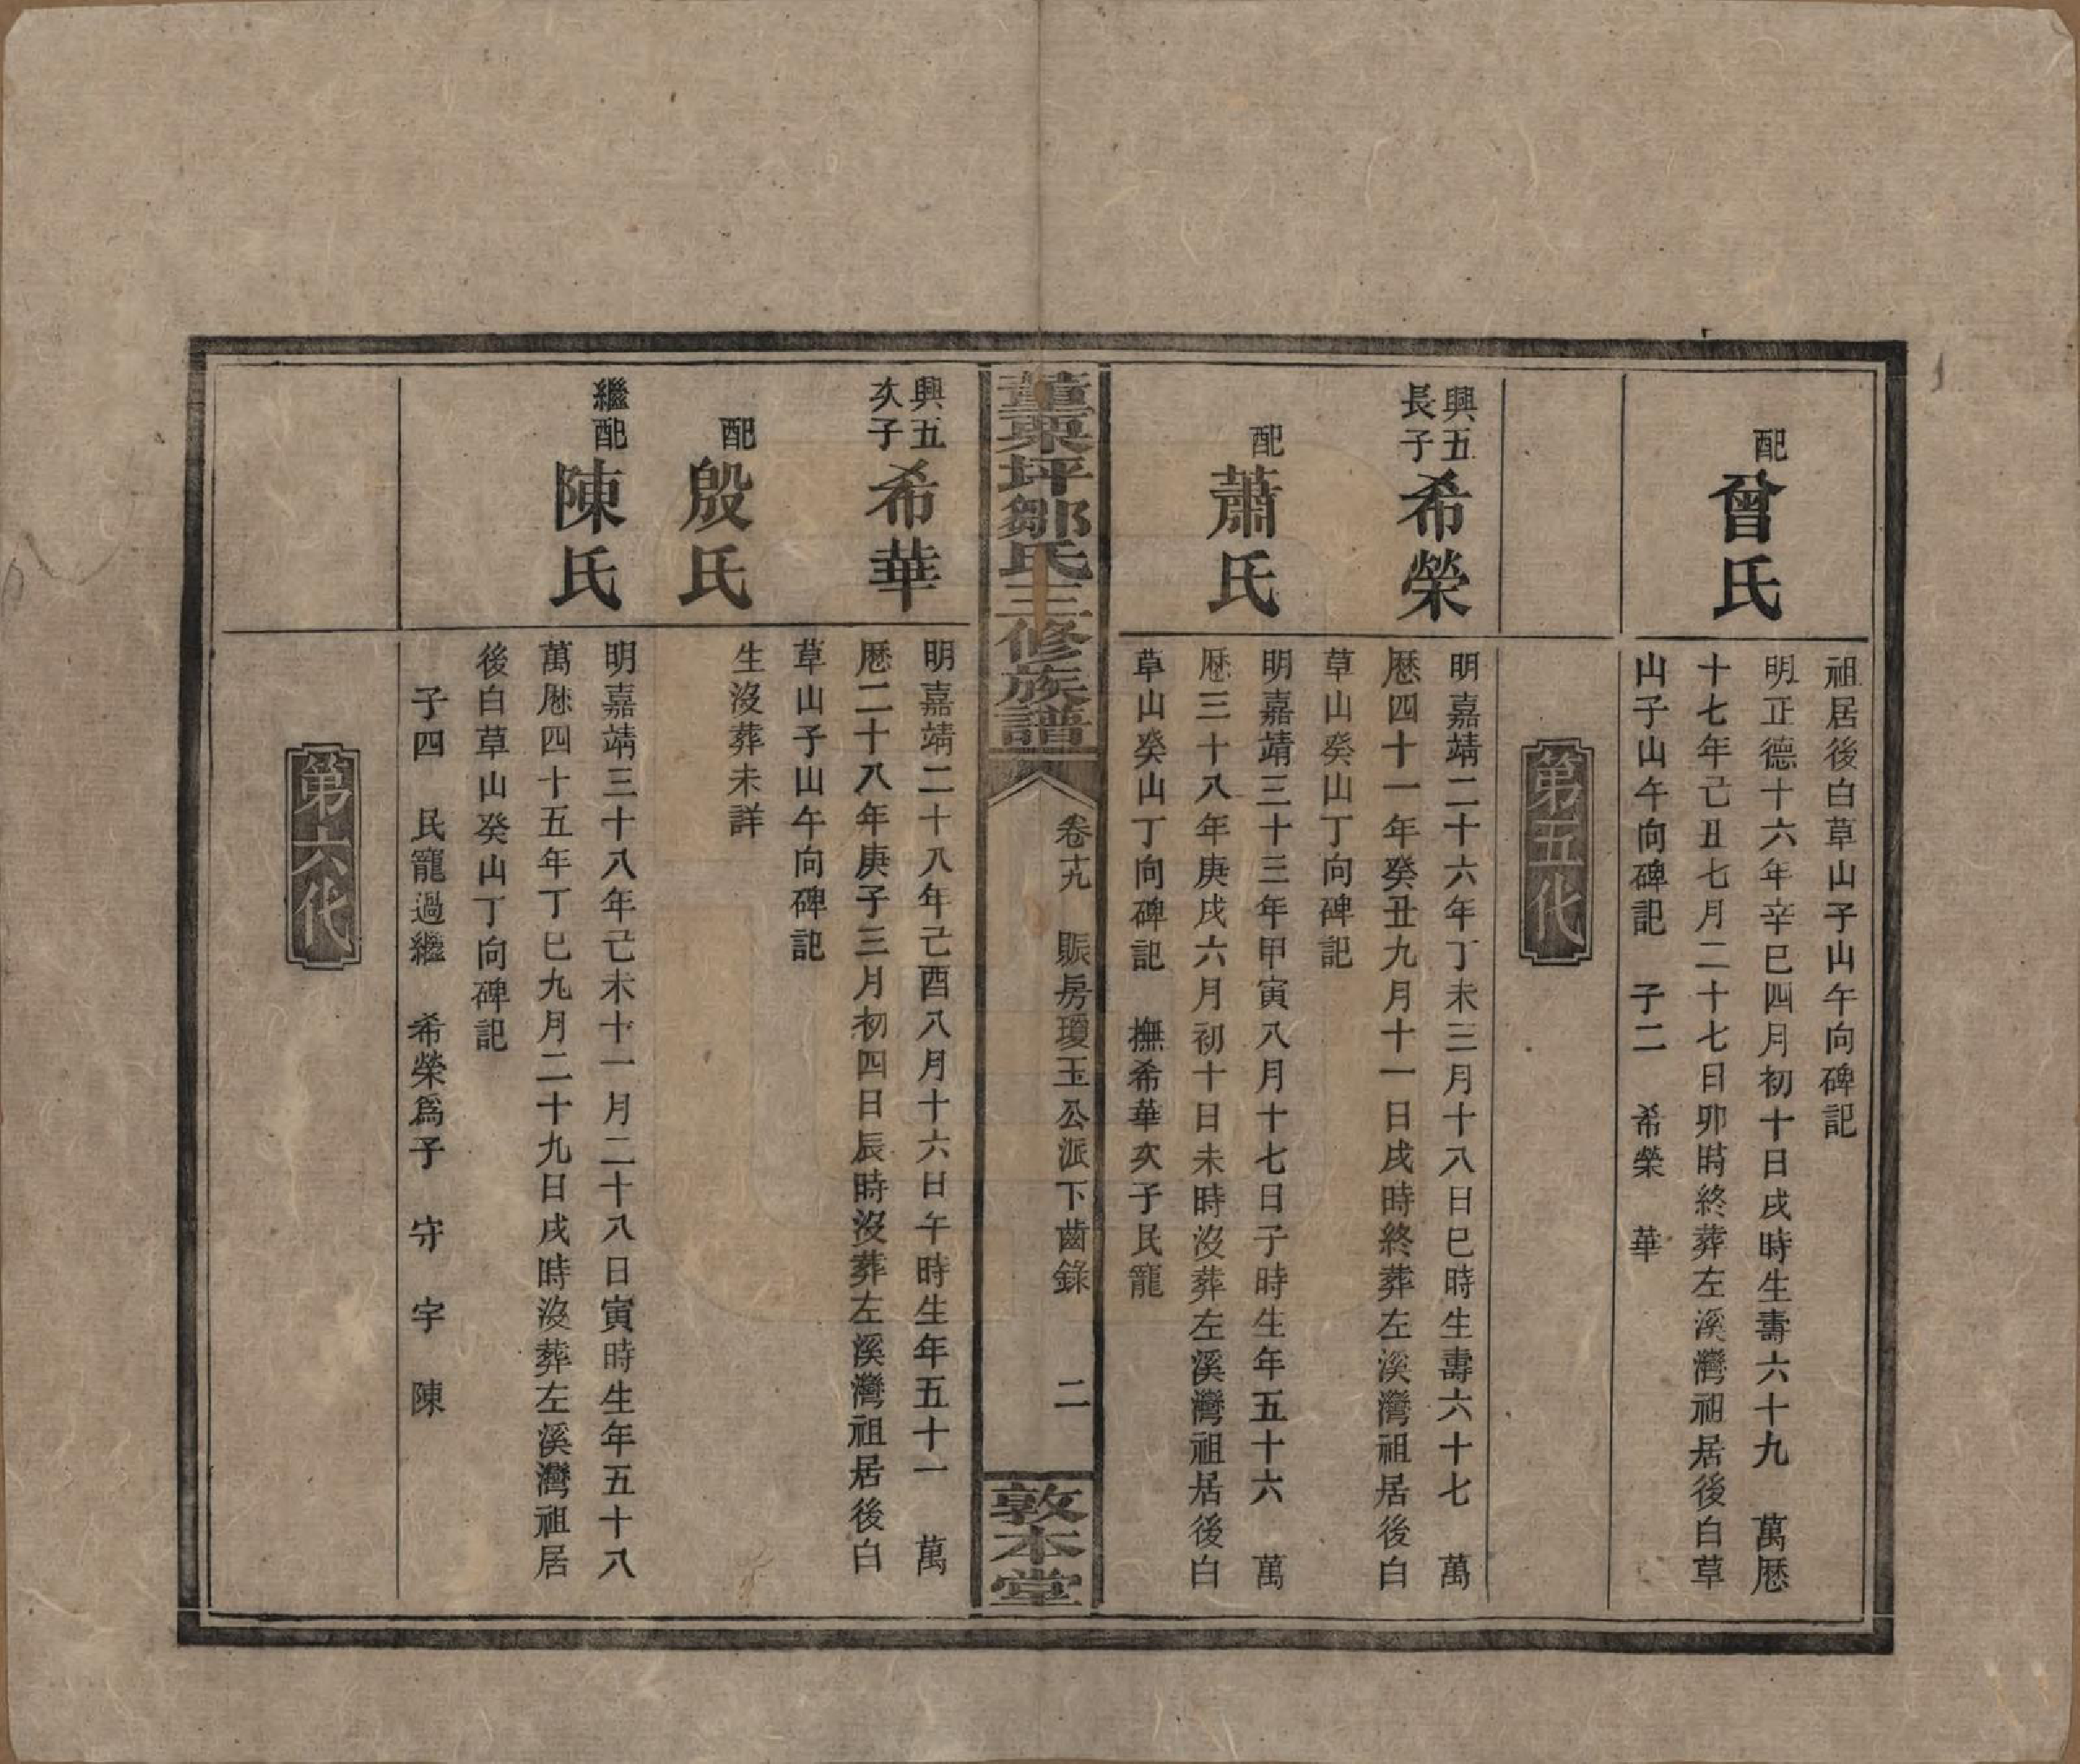 祖居後白草山子山午向碑記
配曾氏
明正德十六年辛巳四月初十日戌時生壽六十九　萬厯
十七年己丑七月二十七日卯時終葬左溪灣祖居後白草
山子山午向碑記　子二　希榮　華
第五代
興五長子希榮
明嘉靖二十六年丁未三月十八日巳時生壽六十七　萬
厯四十一年癸丑九月十一日戌時終葬左溪灣祖居後白
草山癸山丁向碑記
配蕭氏
明嘉靖三十三年甲寅八月十七日子時生年五十六　萬
厯三十八年庚戌六月初十日未時沒葬左溪灣祖居後白
草山癸山丁向碑記　撫希華次子民寵
董栗坪鄒氏三修族譜
卷十九　賑房瓊玉公派下齒錄　二
敦本堂
興五次子希華
明嘉靖二十八年己酉八月十六日午時生年五十一　萬
厯二十八年庚子三月初四日辰時沒葬左溪灣祖居後白
草山子山午向碑記
配殷氏
生沒葬未詳
繼配陳氏
明嘉靖三十八年己未十一月二十八日寅時生年五十八
萬厯四十五年丁巳九月二十九日戌時沒葬左溪灣祖居
後白草山癸山丁向碑記
子四　民寵過繼　希榮爲子　守　宇　陳
第六代